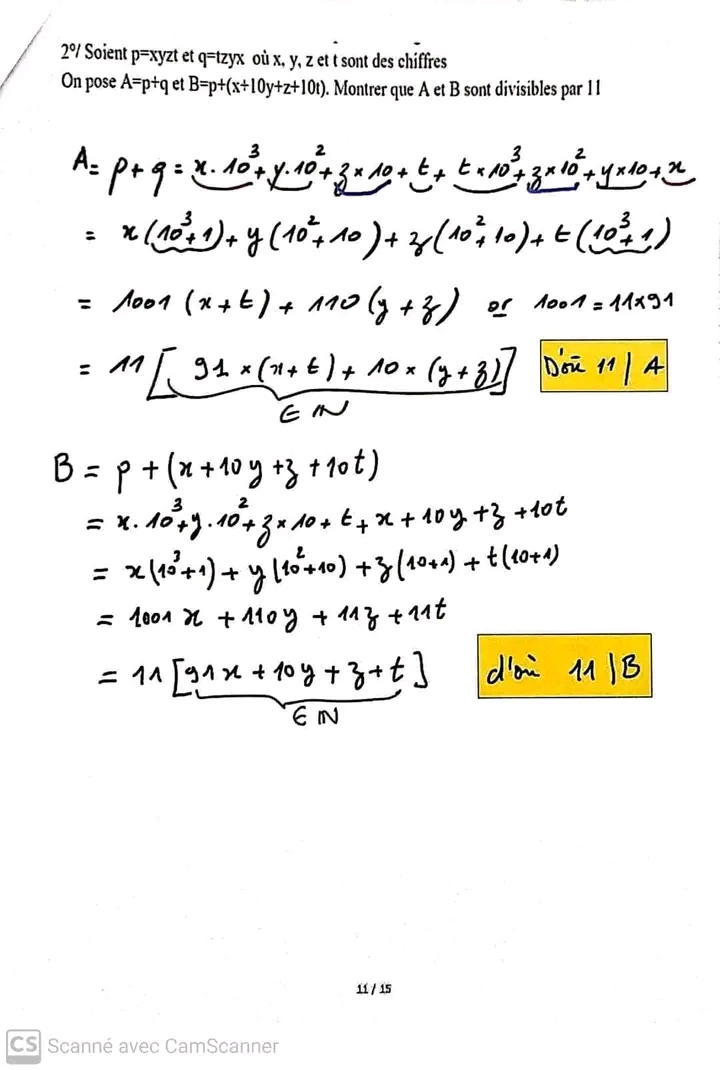 2°/ Soient p=xyzt et q=tzyx où x, y, z et t sont des chiffres
On pose A=p+q et B=p+(x+10y+z+10t). Montrer que A et B sont divisibles par 11
A= p+q = x.10³+y.10²+z×10+t+t×10³+z×10²+y×10+x
= x(10³+1)+y(10²+10)+z(10²+10)+t(10³+1)
= 1001 (x+t)+110(y+z) or 1001=11×91
= 11[91×(x+t)+10×(y+z)] D'où 11 | A
∈ IN
B = p+(x+10y+z+10t)
= x.10³+y.10²+z×10+t+x+10y+z+10t
= x(10³+1)+y(10²+10)+z(10+1)+t(10+1)
= 1001x+110y+11z+11t
= 11[91x+10y+z+t] d'où 11 | B
∈ IN
11 / 15
CS Scanné avec CamScanner